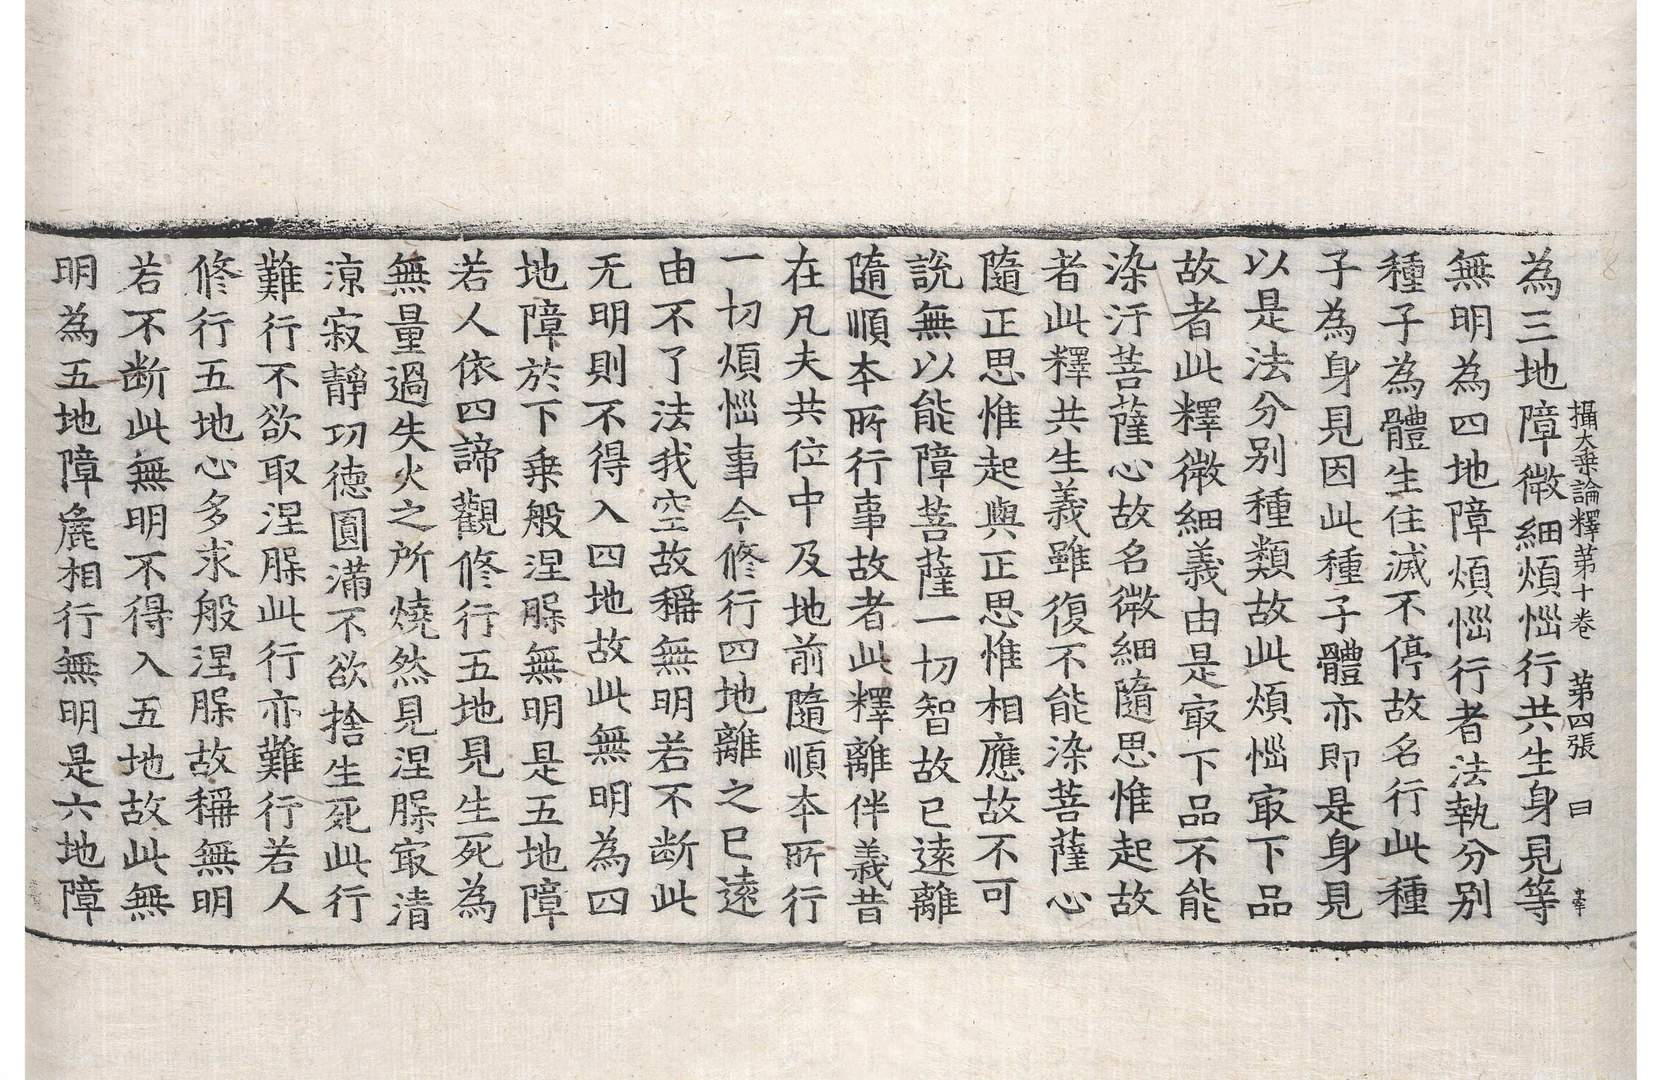 攝大乗論釋第十卷　第四張　曰
為三地障微細煩惱行共生身見等
無明為四地障煩惱行者法執分別
種子為體生住滅不停故名行此種
子為身見因此種子體亦即是身見
以是法分別種類故此煩惱㝡下品
故者此釋微細義由是㝡下品不能
染汙菩薩心故名微細隨思惟起故
者此釋共生義雖復不能染菩薩心
隨正思惟起與正思惟相應故不可
說無以能障菩薩一切智故已遠離
隨順本所行事故者此釋離伴義昔
在凡夫共位中及地前隨順本所行
一切煩惱事今修行四地離之已遠
由不了法我空故稱無明若不断此
无明則不得入四地故此無明為四
地障於下乗般涅槃無明是五地障
若人依四諦觀修行五地見生死為
無量過失火之所燒然見涅槃㝡清
涼寂靜功德圓滿不欲捨生死此行
難行不欲取涅槃此行亦難行若人
修行五地心多求般涅槃故稱無明
若不断此無明不得入五地故此無
明為五地障麁相行無明是六地障